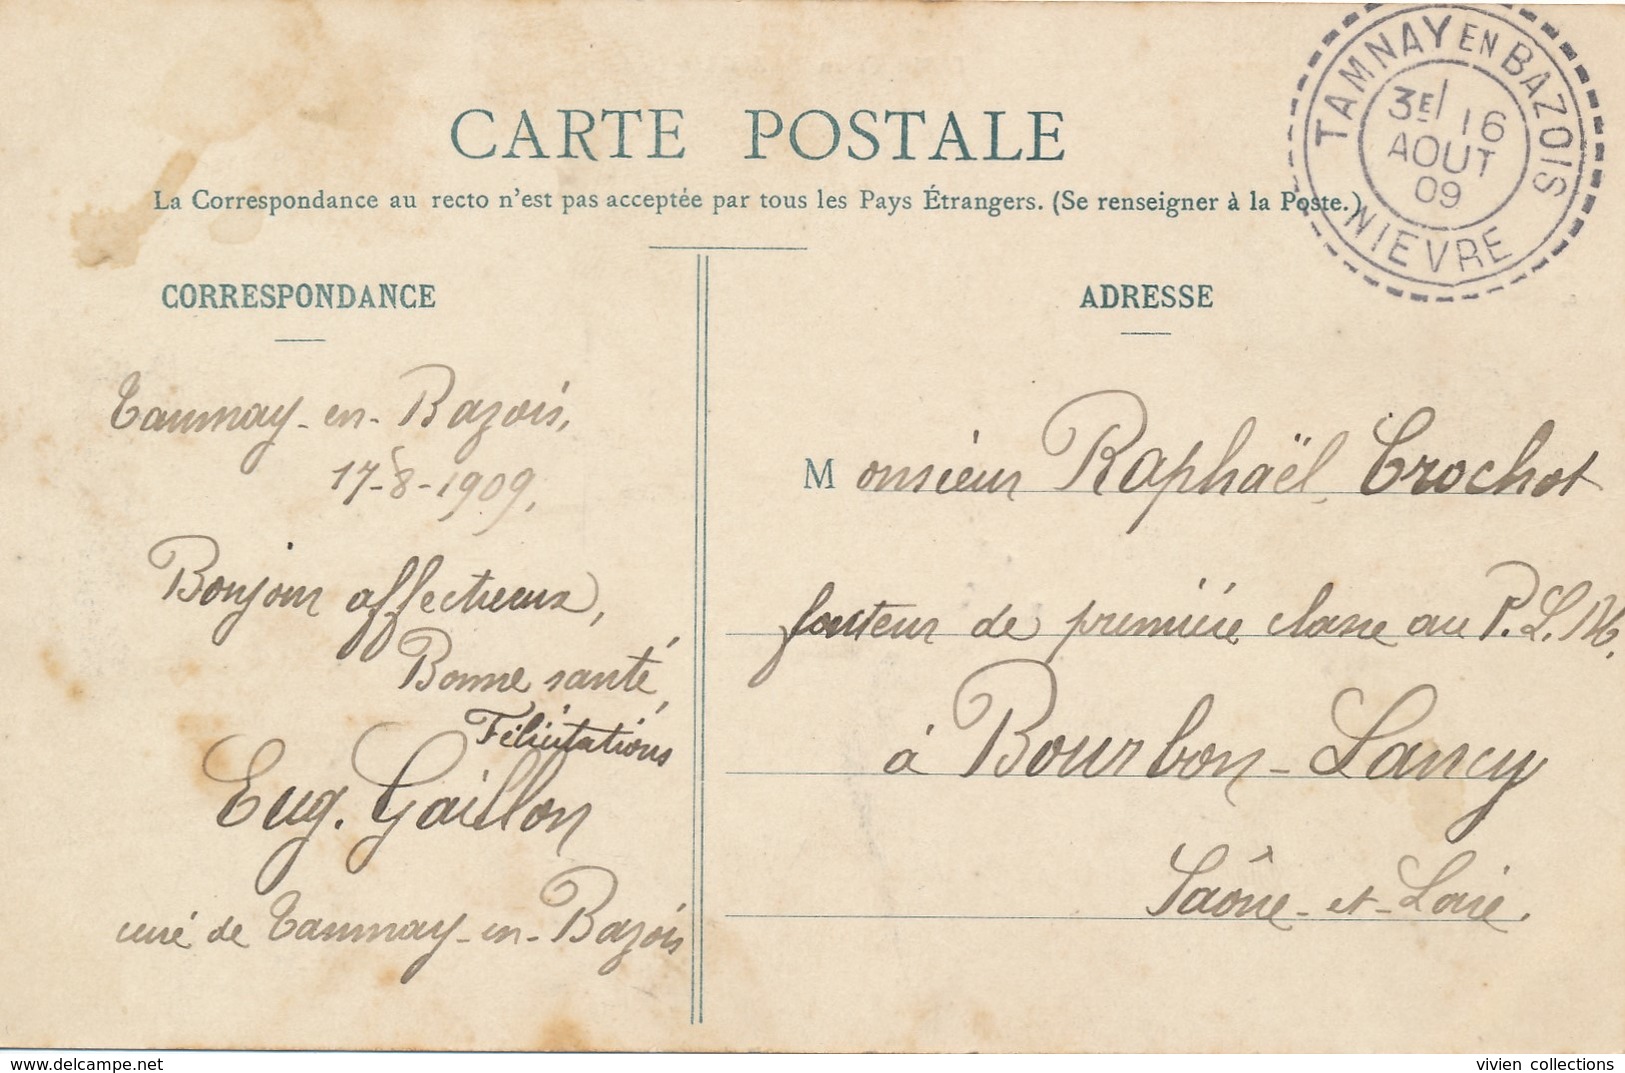 CARTE POSTALE
La Correspondance au recto n'est pas acceptée par tous les Pays Étrangers. (Se renseigner à la Poste.)
TAMNAY EN BAZOIS
3E 16
AOUT
09
NIEVRE
CORRESPONDANCE
Tamnay-en-Bazois,
17-8-1909,
Bonjour affectueux,
Bonne santé,
Félicitations
Eug. Gaillon
curé de Tamnay-en-Bazois
ADRESSE
Monsieur Raphaël Crochot
facteur de première classe au P.L.M.
à Bourbon-Lancy
Saône-et-Loire.
www.delcampe.net
vivien collections